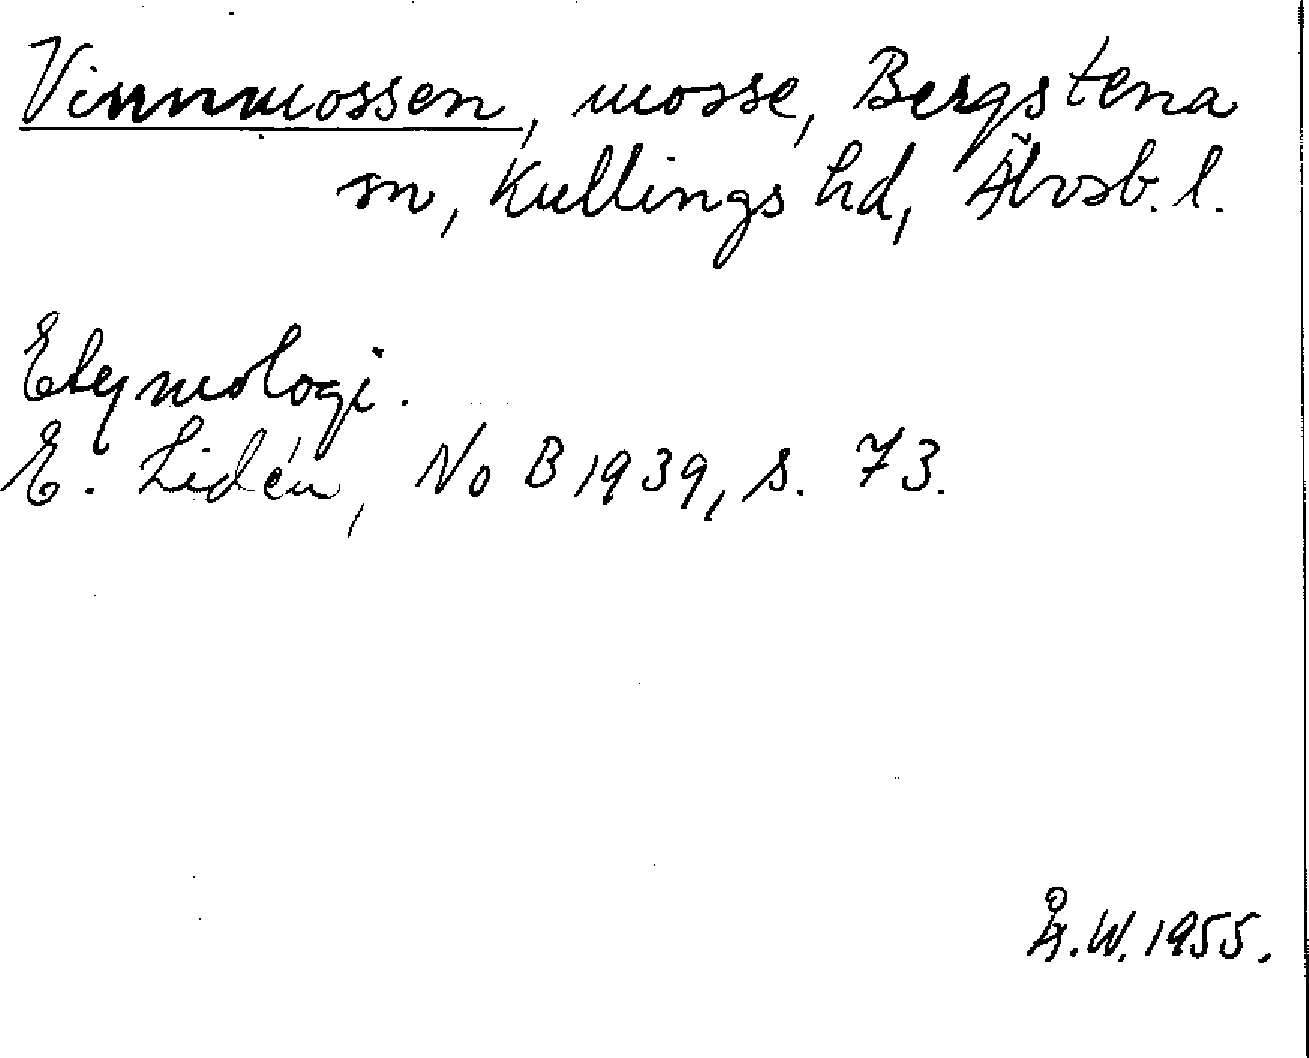 Vinnmossen, mosse, Bergstena
sn, Kullings hd, Älvsb. l.
Etymologi.
E. Lidén, NoB 1939, s. 73.
Å.W. 1955.